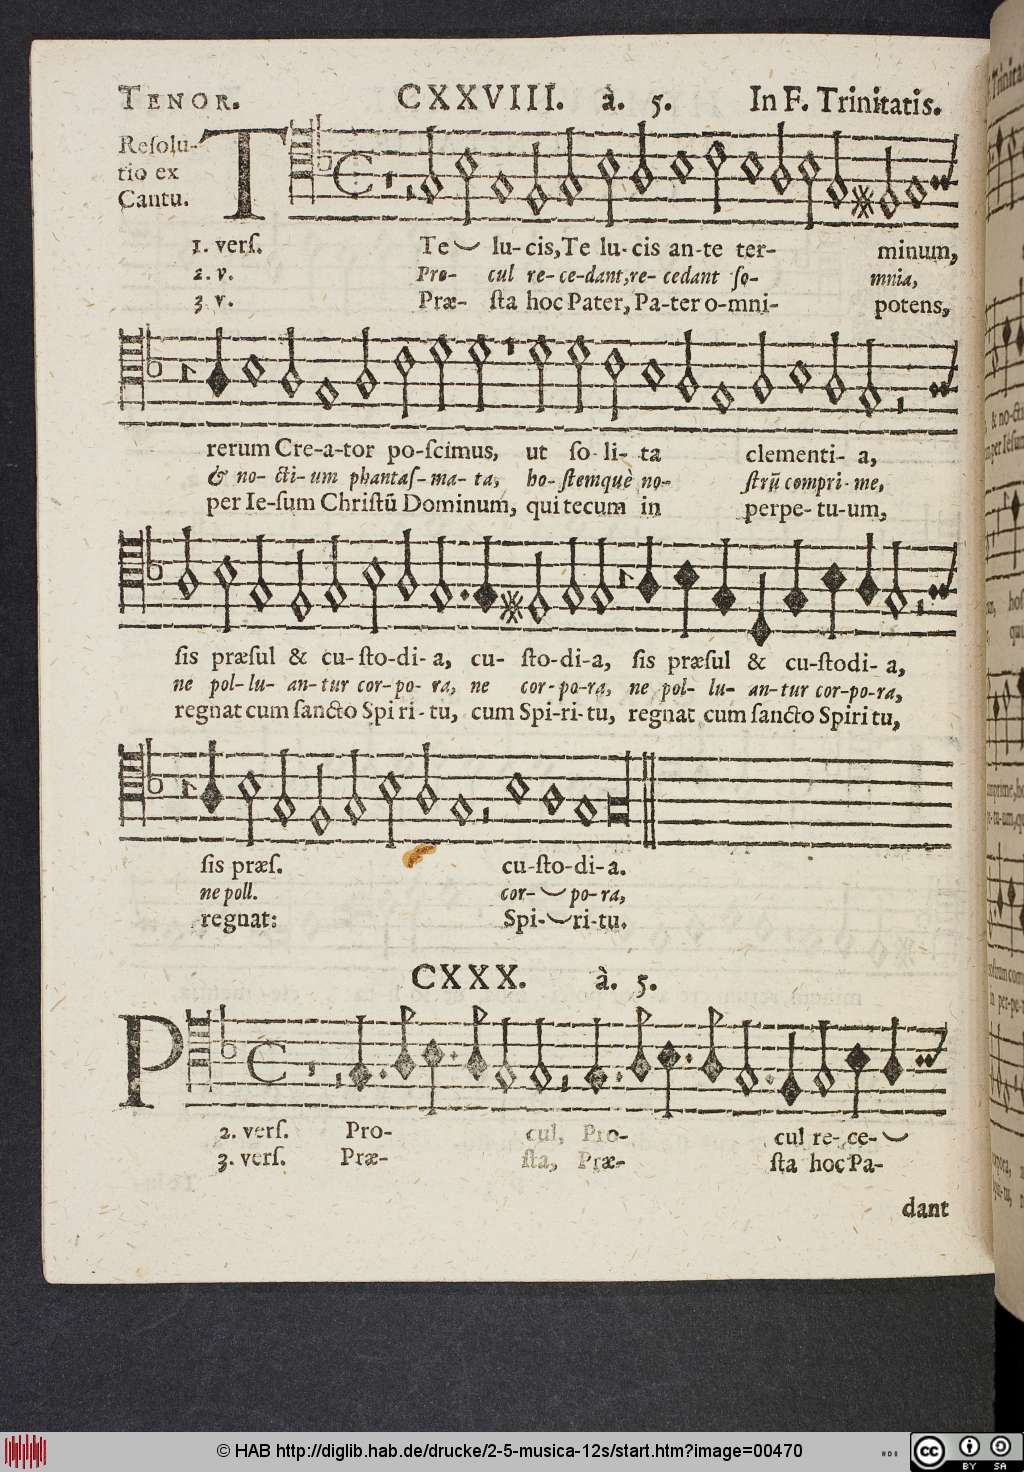 TENOR. CXXVIII. à. 5. In F. Trinitatis.
Reſolu-
tio ex
Cantu.
T
1. verſ. Te lu- cis, Te lu- cis an-te ter- minum,
2. v. Pro- cul re- ce-dant, re- cedant ſo- mnia,
3 v. Præ- ſta hoc Pater, Pa-ter o-mni- potens,
rerum Cre-a-tor po-ſcimus, ut ſo- li- ta clementi- a,
& no- cti- um phantaſ- ma- ta, ho- ſtemquè no- ſtrũ compri- me,
per Ie-ſum Chriſtũ Dominum, qui tecum in perpe- tu-um,
ſis præſul & cu- ſto-di- a, cu- ſto-di-a, ſis præſul & cu-ſtodi- a,
ne pol- lu- an- tur cor- po- ra, ne cor- po- ra, ne pol- lu- an- tur cor-po-ra,
regnat cum ſancto Spi ri- tu, cum Spi-ri- tu, regnat cum ſancto Spiri tu,
ſis præſ. cu-ſto-di-a.
ne poll. cor- po- ra,
regnat: Spi- ri-tu.
CXXX. à. 5.
P
2. verſ. Pro- cul, Pro- cul re- ce-
3. verſ. Præ- ſta, Præ- ſta hoc Pa-
dant
© HAB http://diglib.hab.de/drucke/2-5-musica-12s/start.htm?image=00470
cc BY SA